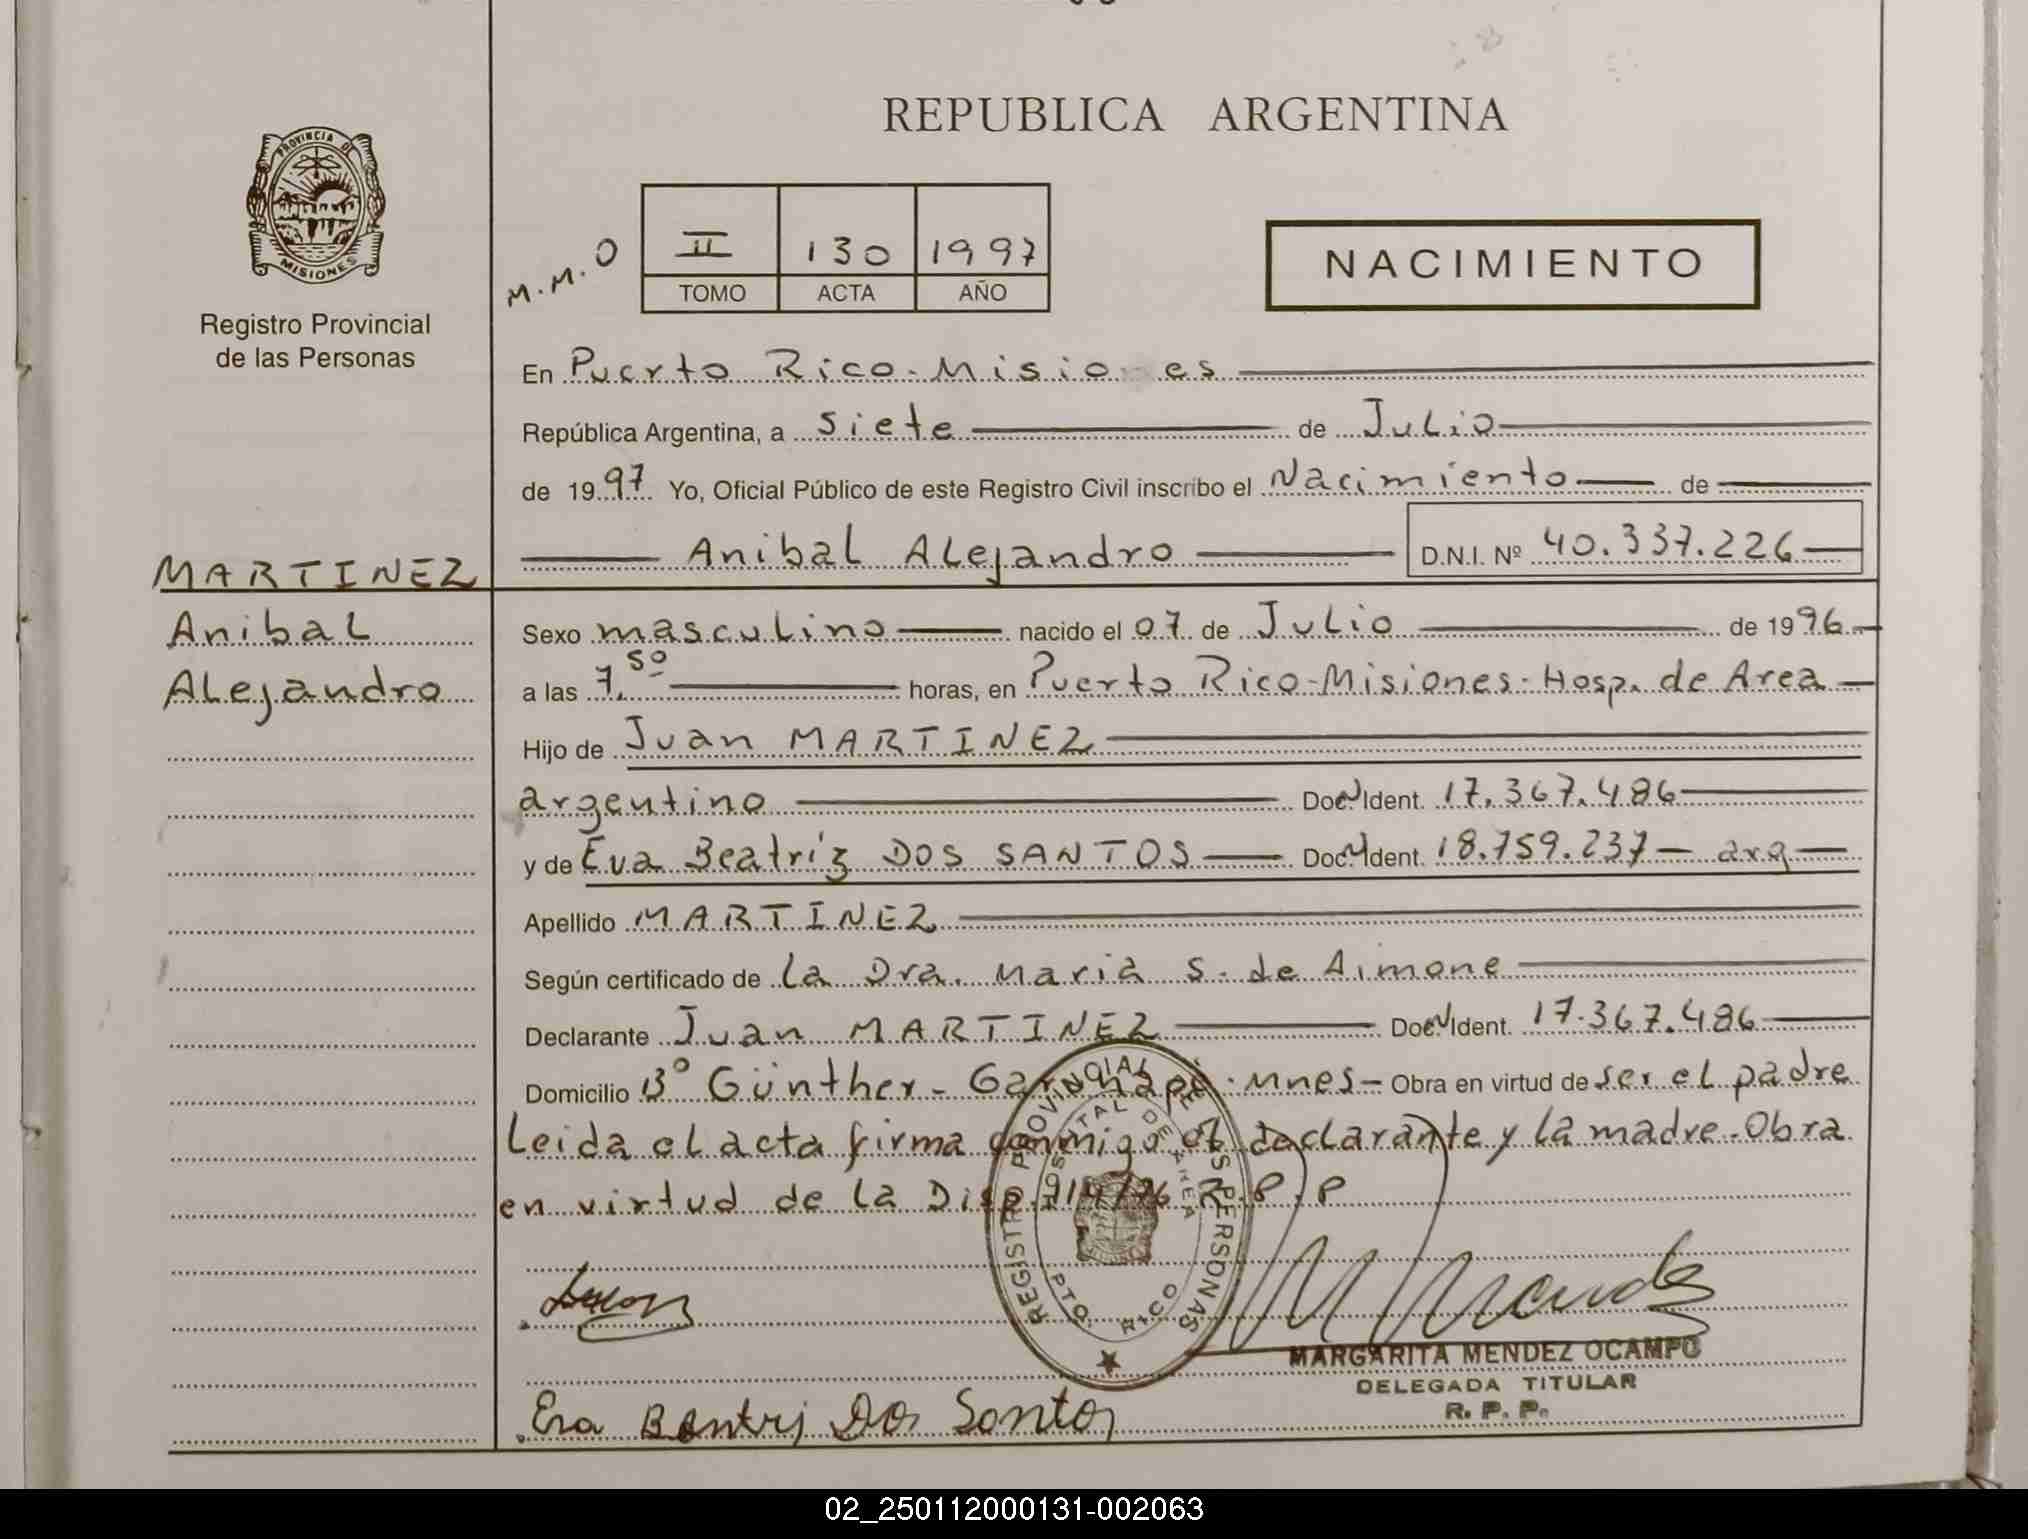 REPUBLICA ARGENTINA
PROVINCIA DE
MISIONES
Registro Provincial
de las Personas
M.M.O
II 130 1997
TOMO ACTA AÑO
NACIMIENTO
En Puerto Rico - Misiones
República Argentina, a siete de Julio
de 1997 Yo, Oficial Público de este Registro Civil inscribo el Nacimiento de
Anibal Alejandro D.N.I. Nº 40.337.226
MARTINEZ
Anibal
Alejandro
Sexo masculino nacido el 07 de Julio de 1996
a las 7.50 horas, en Puerto Rico-Misiones-Hosp. de Area
Hijo de Juan MARTINEZ
argentino Doc. Ident. 17.367.486
y de Eva Beatriz DOS SANTOS Doc. Ident. 18.759.237 - arg
Apellido MARTINEZ
Según certificado de la Dra. Maria S. de Aimone
Declarante Juan MARTINEZ Doc. Ident. 17.367.486
Domicilio Bº Günther - Garuhapé - Mnes - Obra en virtud de ser el padre
Leida el acta firma conmigo el declarante y la madre. Obra
en virtud de la Disp. R.P.P
REGISTRO PROVINCIAL DE LAS PERSONAS
HOSPITAL DE AREA
PTO. RICO
MARGARITA MENDEZ OCAMPO
DELEGADA TITULAR
R. P. P.
Eva Beatriz Dos Santos
02_250112000131-002063